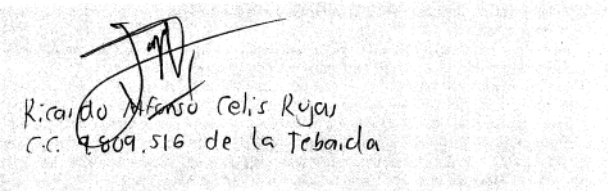 Ricardo Alfonso Celis Rojas
C.C. 9809.516 de la Tebaida